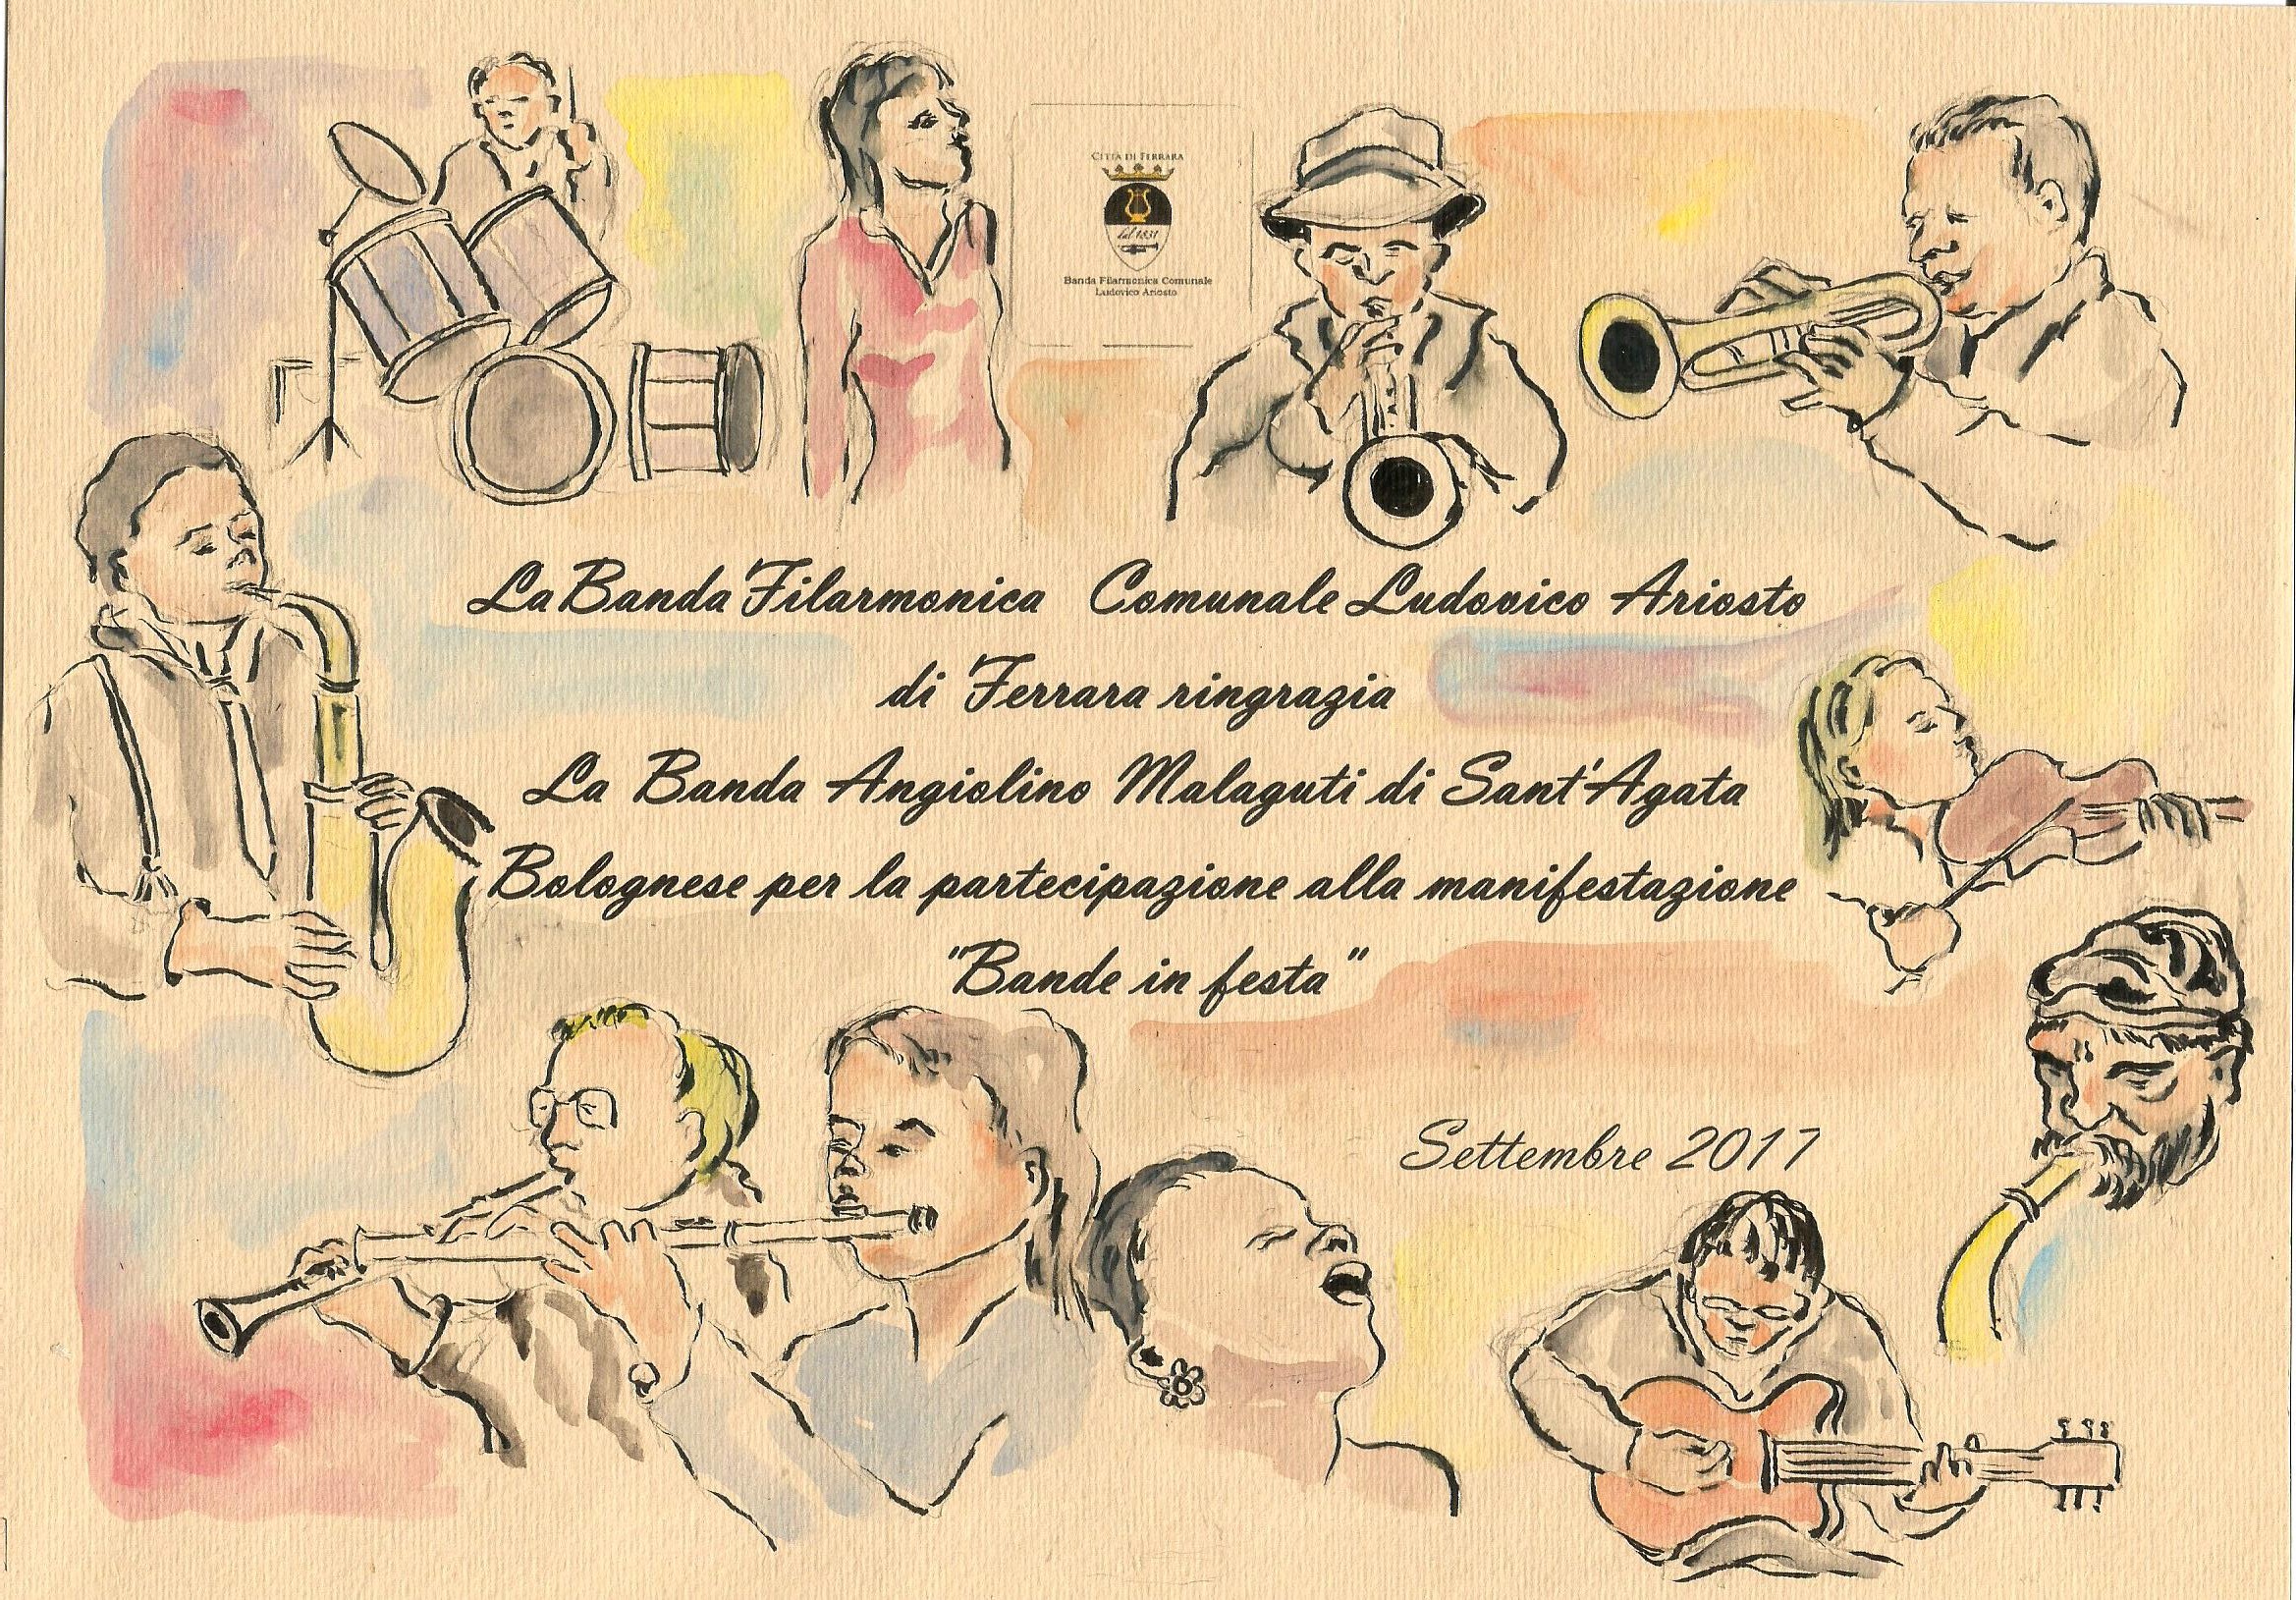 CITTÀ DI FERRARA
dal 1831
Banda Filarmonica Comunale
Ludovico Ariosto
La Banda Filarmonica Comunale Ludovico Ariosto
di Ferrara ringrazia
La Banda Angiolino Malaguti di Sant'Agata
Bolognese per la partecipazione alla manifestazione
"Bande in festa"
Settembre 2017